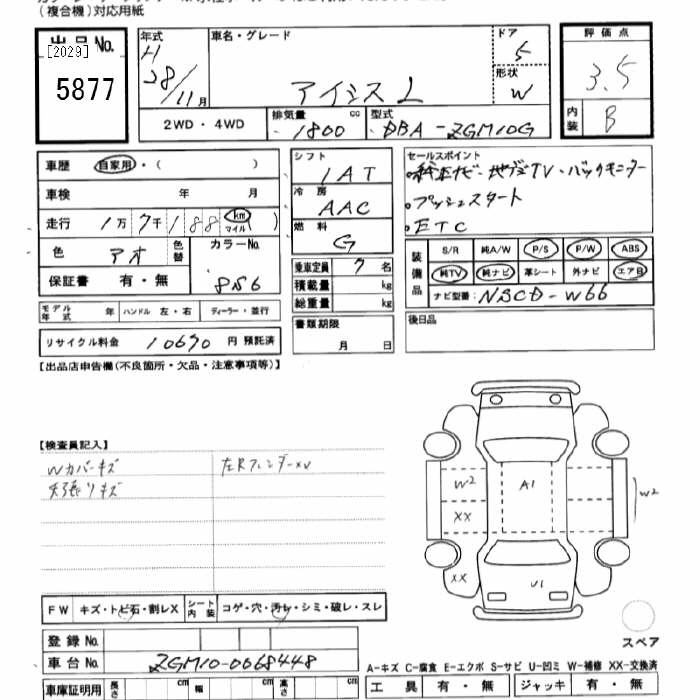 (複合機)対応用紙
出品No.
[2029]
5877
年式 車名・グレード ドア 評価点
H 28/11月 アイシスL 5 3.5
形状 W
2WD・4WD 排気量 1800 cc 型式 DBA-ZGM10G 内装 B
車歴 自家用・( ) シフト セールスポイント
IAT 純正ナビ・地デジTV・バックモニター
車検 年 月 冷房 AAC プッシュスタート
走行 1万7千188 km マイル 燃料 G ETC
色 アオ 色替 カラーNo. 856
保証書 有・無
乗車定員 7名
積載量 kg
総重量 kg
装備品 S/R 純A/W P/S P/W ABS
純TV 純ナビ 革シート 外ナビ エアB
ナビ型番: NSCD-W66
モデル年式 年 ハンドル 左・右 ディーラー・並行
書類期限 月 日
後日品
リサイクル料金 10690 円 預託済
【出品店申告欄(不良箇所・欠品・注意事項等)】
【検査員記入】
Wカバーキズ 左Rフェンダーxv
天張りキズ
W2 A1 W2
XX
XX U1
FW キズ・トビ石・割レX シート内装 コゲ・穴・汚レ・シミ・破レ・スレ
スペア
登録No.
車台No. ZGM10-0068448
A-キズ C-腐食 E-エクボ S-サビ U-凹ミ W-補修 XX-交換済
車庫証明用 長さ cm 幅 cm 高さ cm 工具 有・無 ジャッキ 有・無